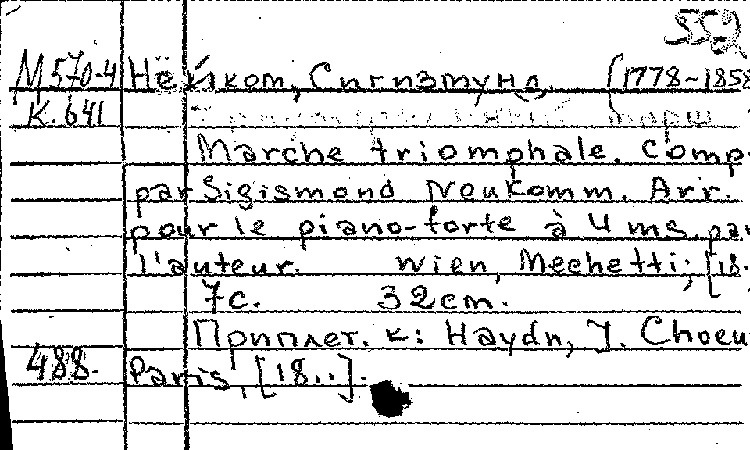 552
M 570-4 Нёйком, Сигизмунд. (1778-1858
K. 641 Триумфальный марш
Marche triomphale. Comp.
par Sigismond Neukomm. Arr.
pour le piano-forte à 4 ms. par
l'auteur. Wien, Mechetti; [18.
7c. 32cm.
Приплет. к: Haydn, J. Choeu
488. Paris, [18..].